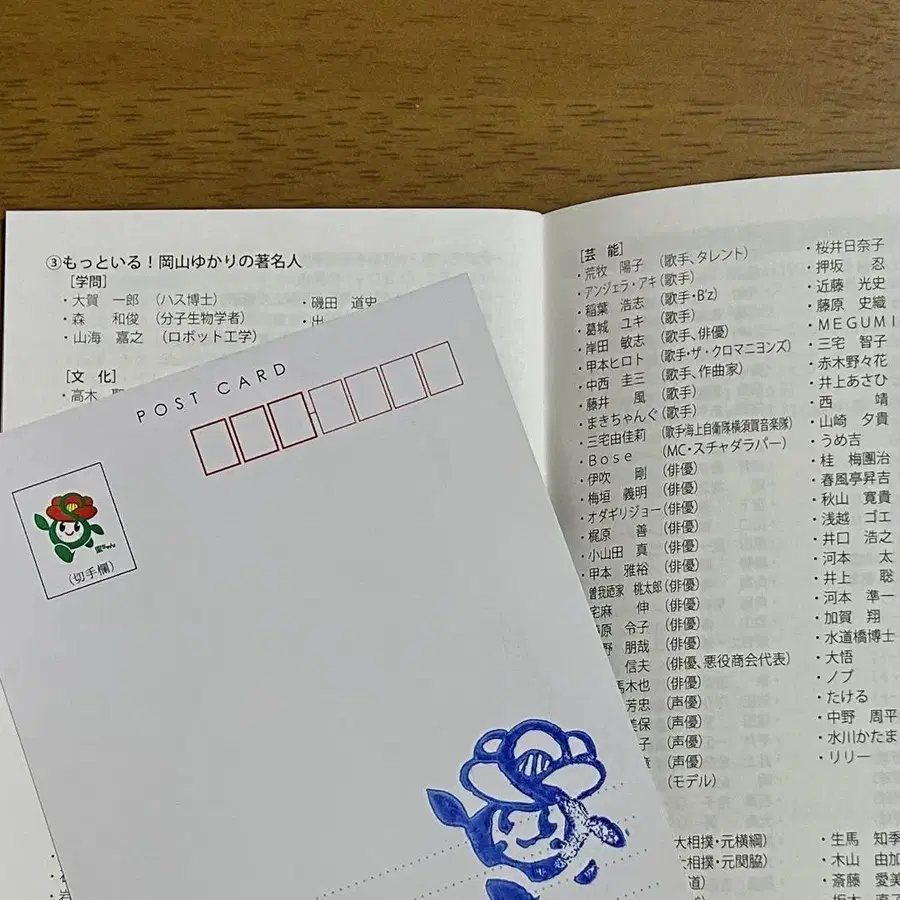 ③もっといる！岡山ゆかりの著名人
［学問］
・大賀　一郎　（ハス博士）
・森　　和俊　（分子生物学者）
・山海　嘉之　（ロボット工学）
・磯田　道史
・出
［文　化］
・高木　聖
POST CARD
里ちゃん
（切手欄）
［芸　能］
・荒牧　陽子　（歌手、タレント）
・アンジェラ・アキ（歌手）
・稲葉　浩志　（歌手・B'z）
・葛城　ユキ　（歌手）
・岸田　敏志　（歌手、俳優）
・甲本ヒロト　（歌手・ザ・クロマニヨンズ）
・中西　圭三　（歌手、作曲家）
・藤井　　風　（歌手）
・まきちゃんぐ（歌手）
・三宅由佳莉　（歌手・海上自衛隊横須賀音楽隊）
・Ｂｏｓｅ　　（MC・スチャダラパー）
・伊吹　　剛　（俳優）
・梅垣　義明　（俳優）
・オダギリジョー（俳優）
・梶原　　善　（俳優）
・小山田　真　（俳優）
・甲本　雅裕　（俳優）
・曽我廼家　桃太郎（俳優）
宅麻　　伸　（俳優）
原　令子　（俳優）
野　朋哉　（俳優）
信夫　（俳優、悪役商会代表）
馬木也　（俳優）
芳忠　（声優）
美保　（声優）
子　（声優）
章　（声優）
（モデル）
大相撲・元横綱）
大相撲・元関脇）
道）
・桜井日奈子
・押坂　　忍
・近藤　光史
・藤原　史織
・ＭＥＧＵＭＩ
・三宅　智子
・赤木野々花
・井上あさひ
・西　　　靖
・山崎　夕貴
・うめ吉
・桂　梅團治
・春風亭昇吉
・秋山　寛貴
・浅越　ゴエ
・井口　浩之
・河本　　太
・井上　　聡
・河本　準一
・加賀　翔
・水道橋博士
・大悟
・ノブ
・たける
・中野　周平
・水川かたま
・リリー
・生馬　知季
・木山　由加
・斎藤　愛美